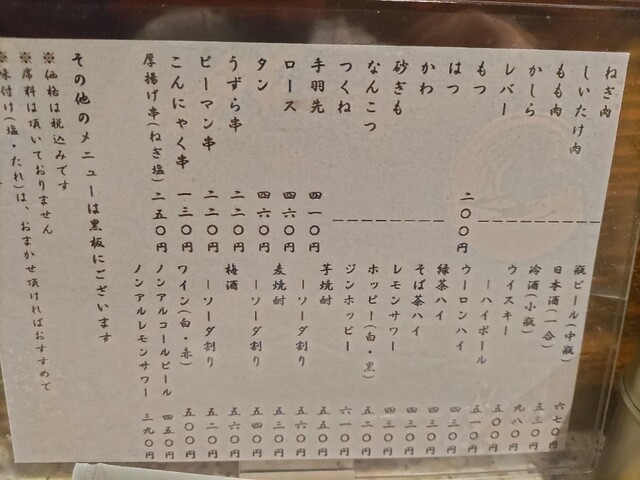 ねぎ肉
しいたけ肉
もも肉
かしら
レバー
もつ
はつ
かわ
砂ぎも
なんこつ
つくね
二〇〇円
手羽先 四一〇円
ロース 四六〇円
タン 四六〇円
うずら串 二二〇円
ピーマン串 二二〇円
こんにゃく串 一三〇円
厚揚げ串(ねぎ塩) 二五〇円
瓶ビール(中瓶) 六七〇円
日本酒(一合) 五三〇円
冷酒(小瓶) 九八〇円
ウイスキー 五〇〇円
―ハイボール 五一〇円
ウーロンハイ 四三〇円
緑茶ハイ 四三〇円
そば茶ハイ 四三〇円
レモンサワー 四三〇円
ホッピー(白・黒) 五二〇円
ジンホッピー 六一〇円
芋焼酎 五五〇円
―ソーダ割り 五六〇円
麦焼酎
―ソーダ割り 五四〇円
梅酒 五六〇円
―ソーダ割り 五二〇円
ワイン(白・赤) 五〇〇円
ノンアルコールビール 四五〇円
ノンアルレモンサワー 三九〇円
その他のメニューは黒板にございます
※価格は税込みです
※席料は頂いておりません
※味付け(塩・たれ)は、おまかせ頂ければおすすめで